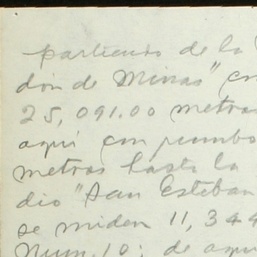 partiendo de la
don de Minas" con
25,091.00 metros
aqui con rumbo
metros hasta la
dio "San Esteban
se miden 11,344
Num. 10; de aqui